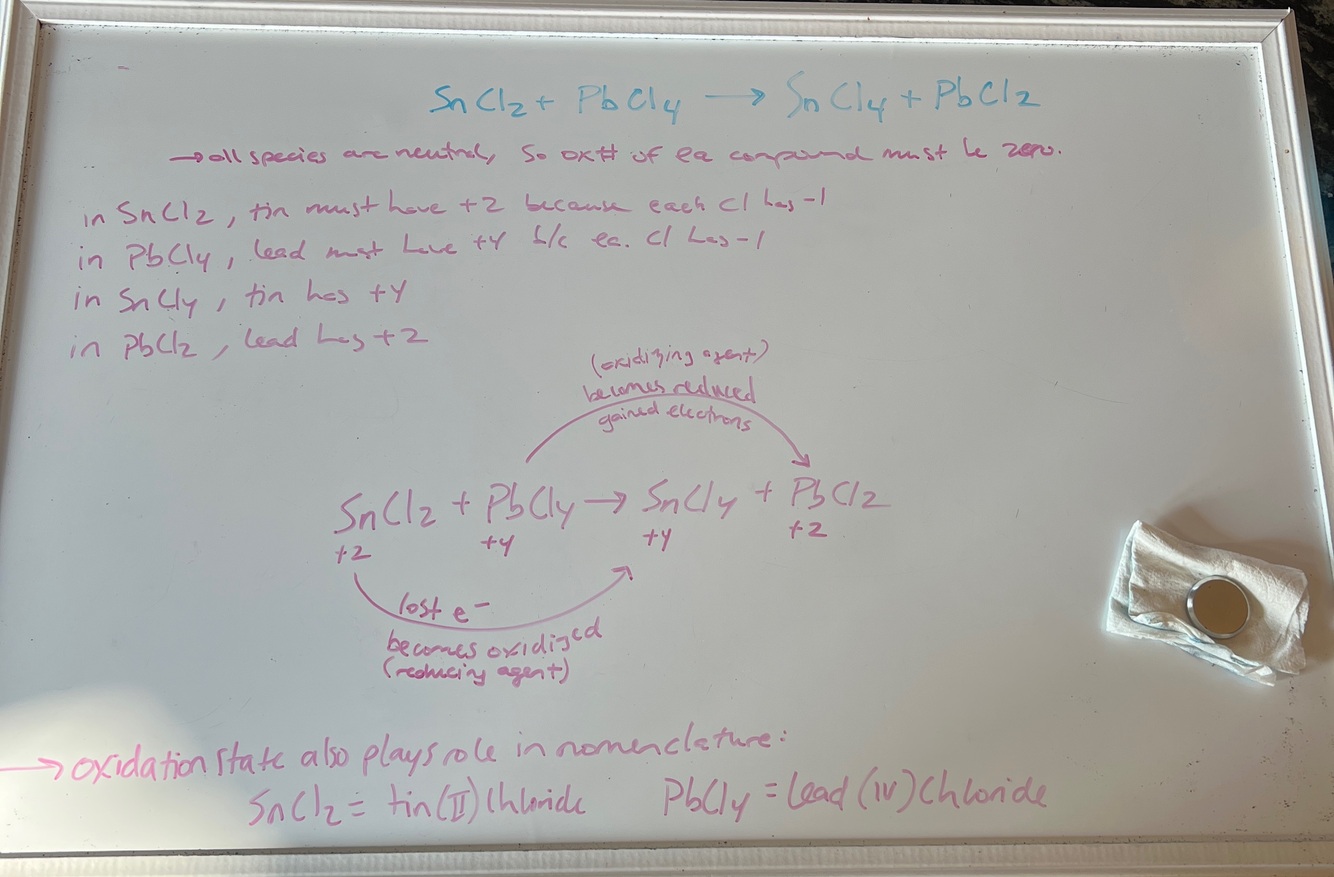 SnCl2 + PbCl4 → SnCl4 + PbCl2
→ all species are neutral, so ox# of ea compound must be zero.
in SnCl2, tin must have +2 because each Cl has -1
in PbCl4, lead must have +4 b/c ea. Cl has -1
in SnCl4, tin has +4
in PbCl2, lead has +2
(oxidizing agent)
becomes reduced
gained electrons
SnCl2 + PbCl4 → SnCl4 + PbCl2
+2 +4 +4 +2
lost e-
becomes oxidized
(reducing agent)
→ oxidation state also plays role in nomenclature:
SnCl2 = tin(II) Chloride PbCl4 = lead (IV) Chloride